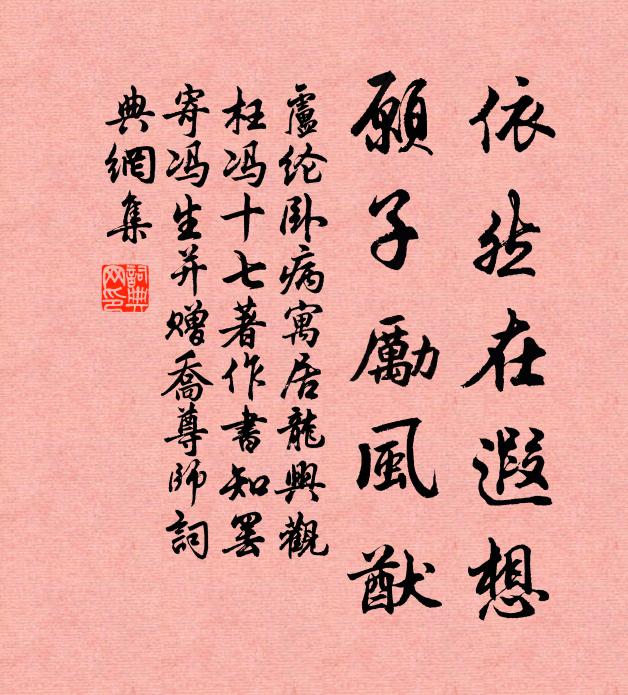 依然在遐想
願子厲風猷
盧纶卧病寓居龍興觀
枉冯十七著作書知罢
寄冯生并赠喬尊師詞
典網集
詞典
网印